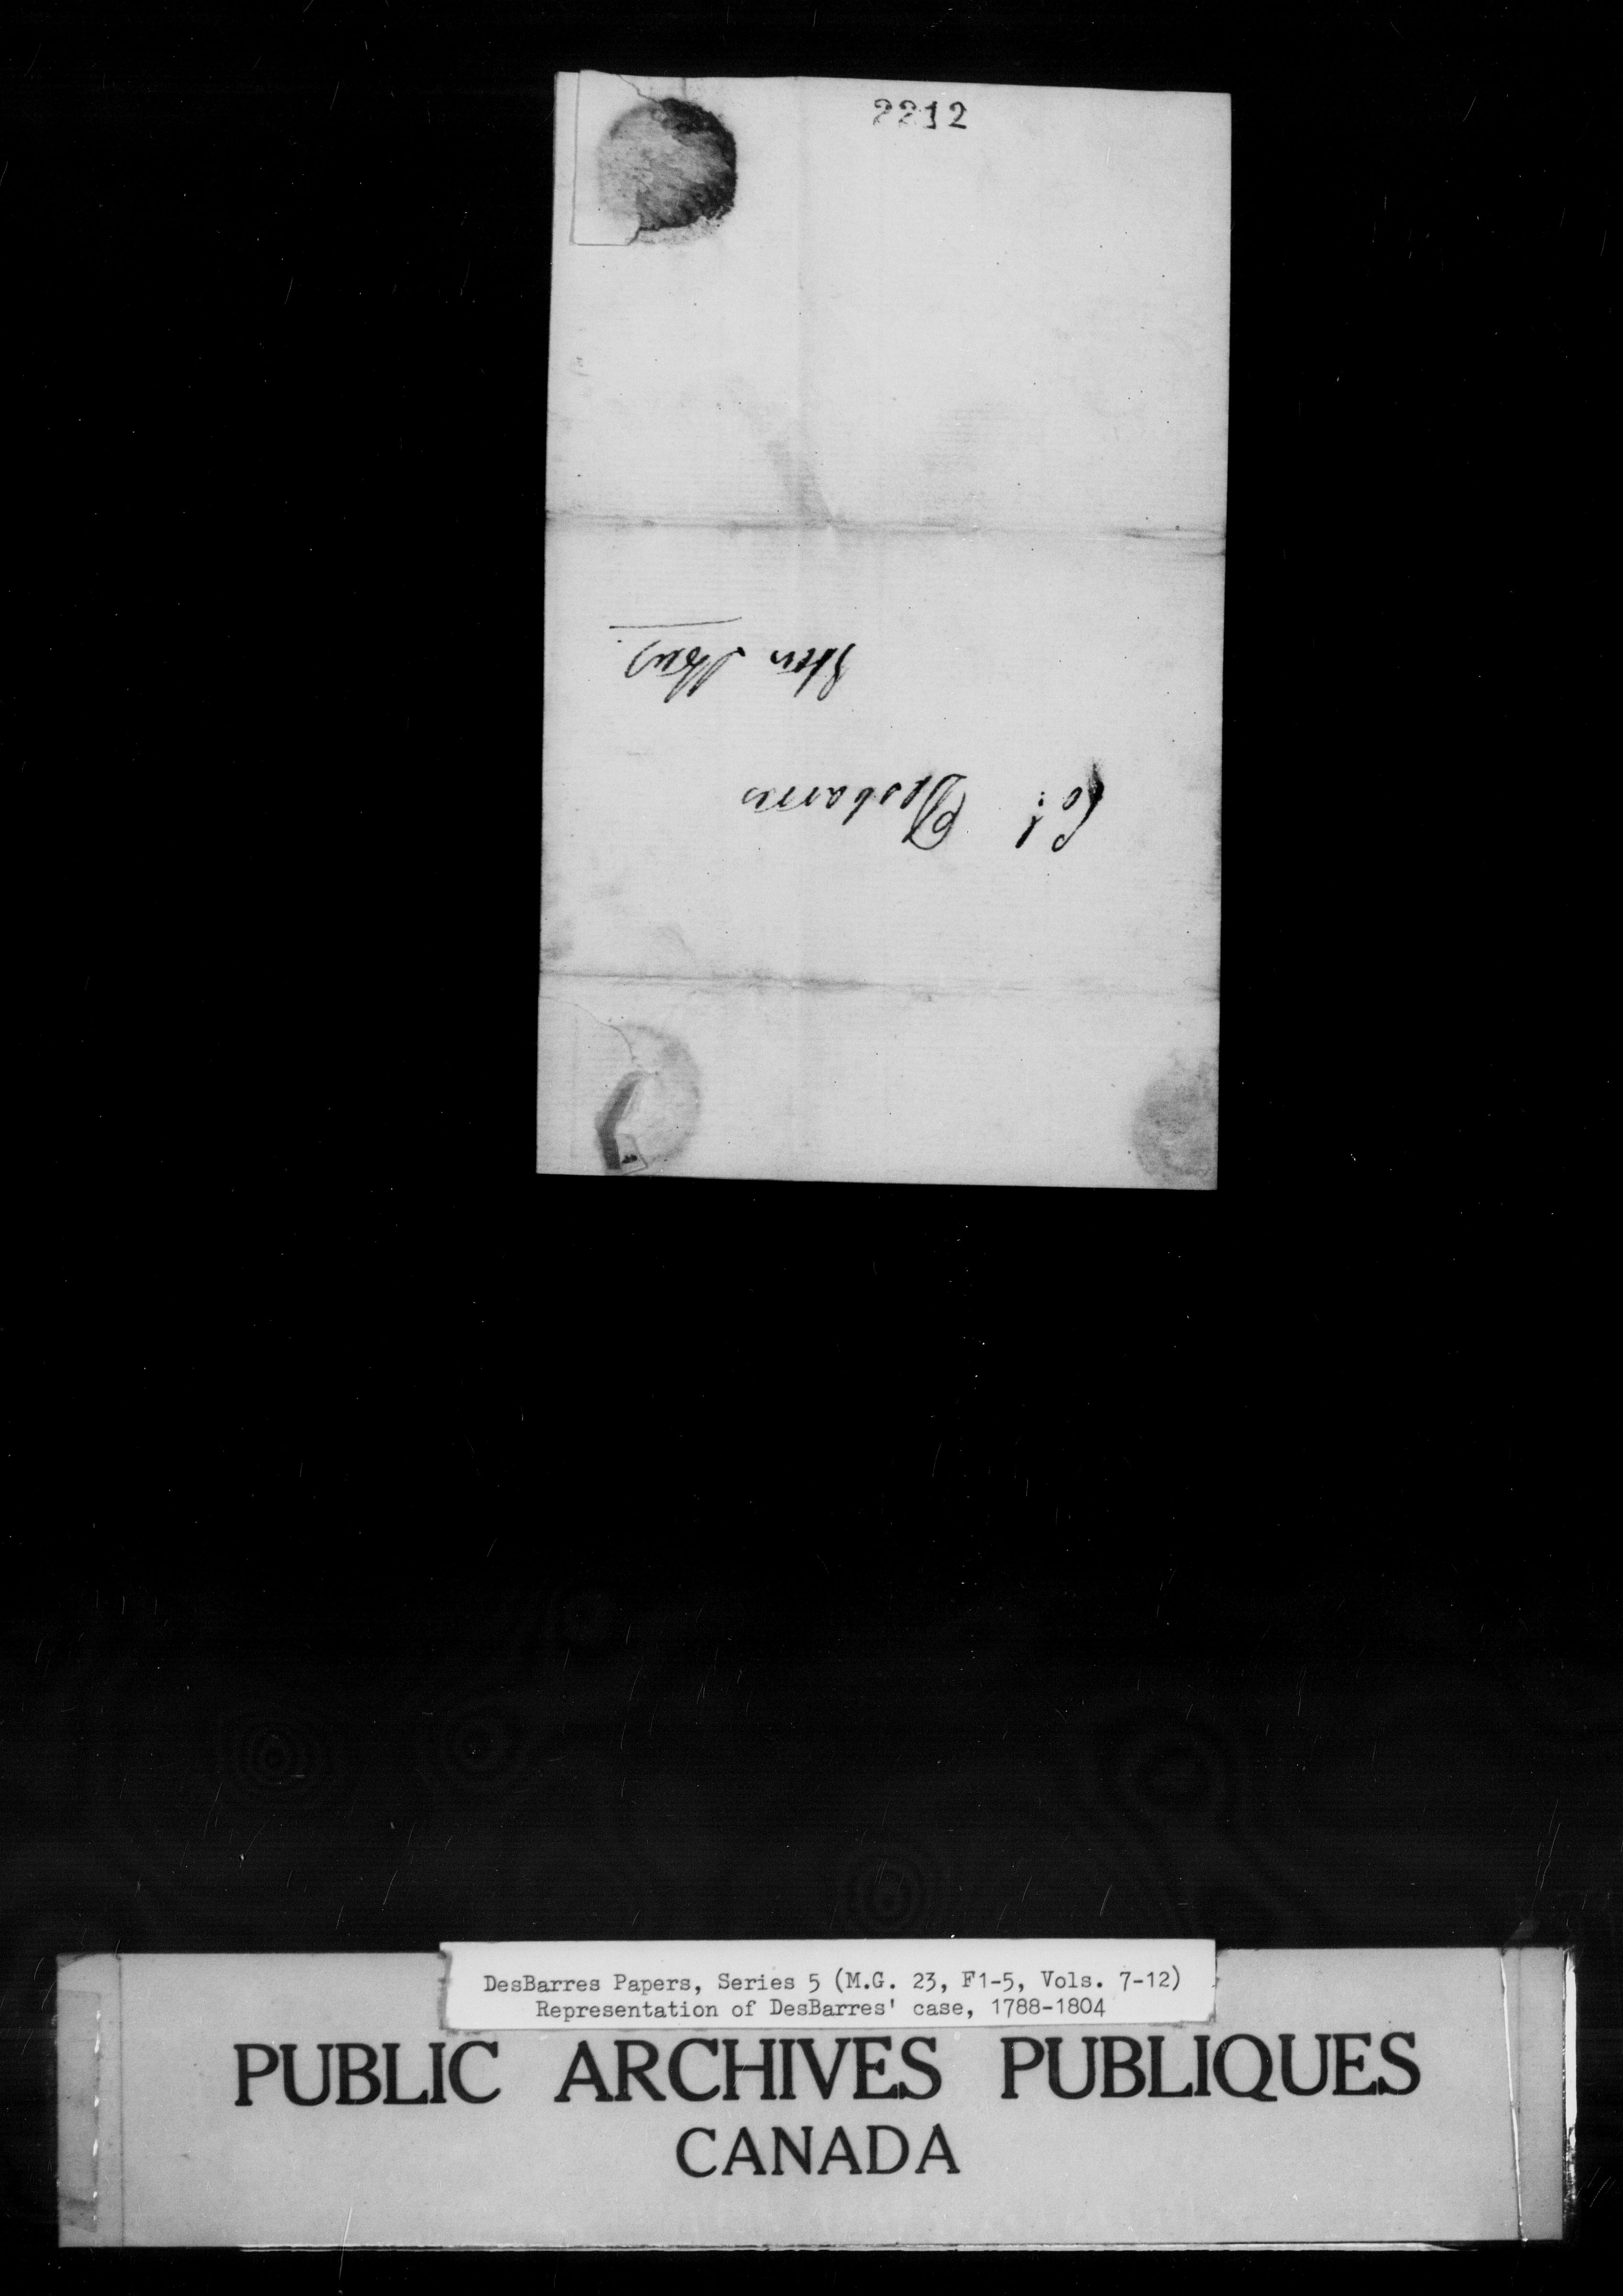 2212
Col: Desbarres
DesBarres Papers, Series 5 (M.G. 23, F1-5, Vols. 7-12)
Representation of DesBarres' case, 1788-1804
PUBLIC ARCHIVES PUBLIQUES
CANADA